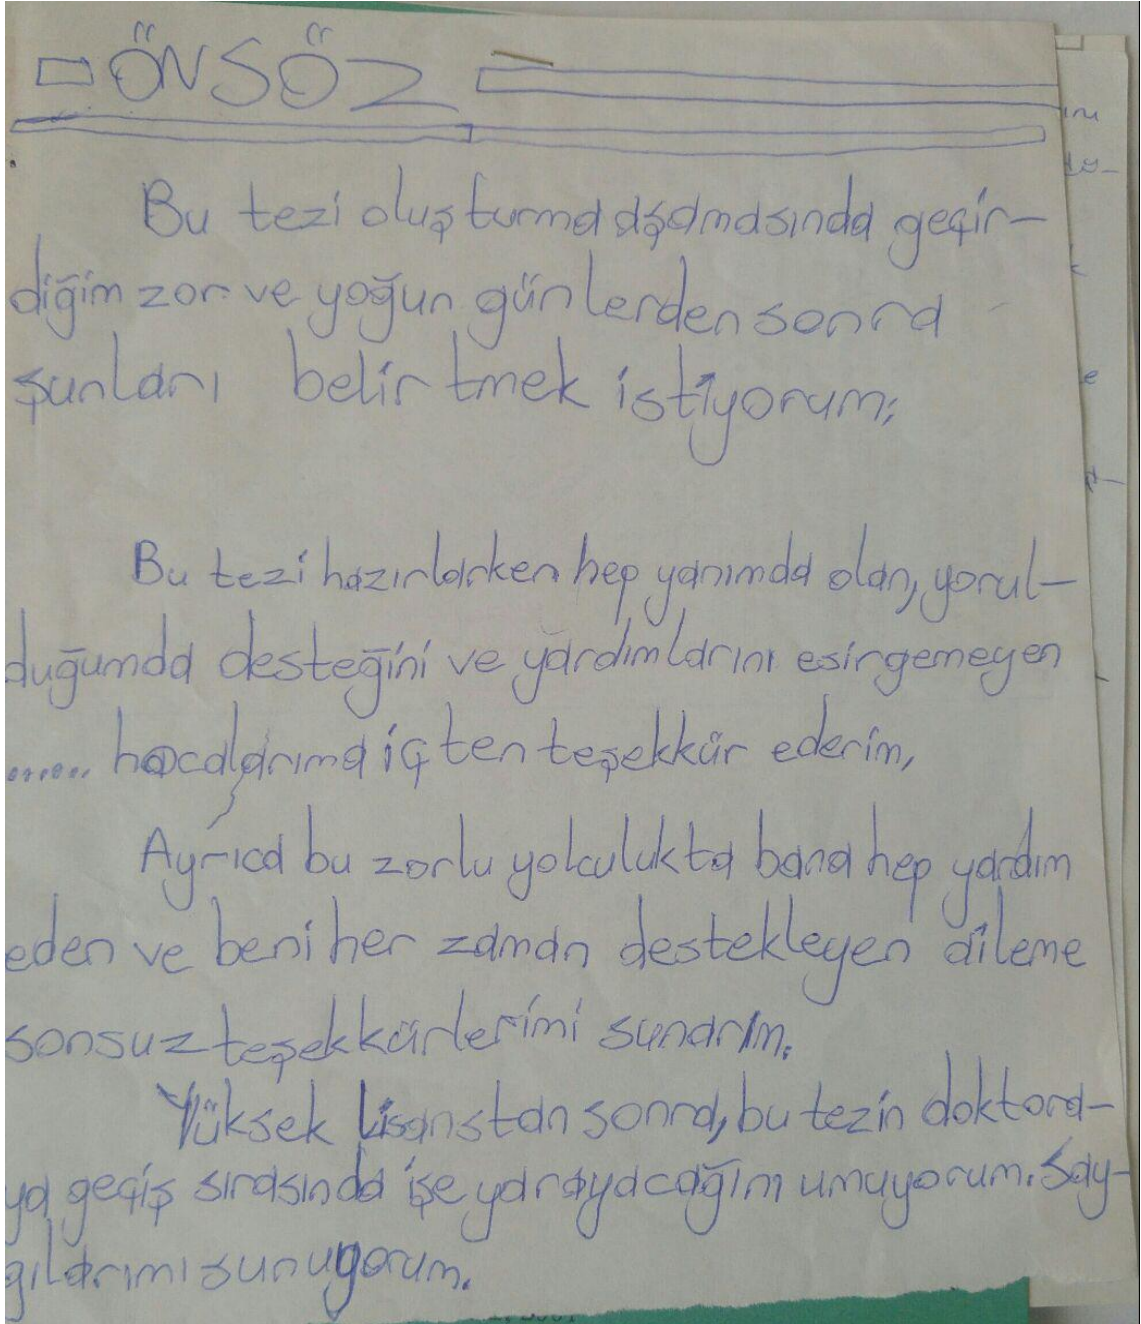 ÖNSÖZ
Bu tezi oluşturma aşamasında geçir-
diğim zor ve yoğun günlerden sonra
şunları belirtmek istiyorum;
Bu tezi hazırlarken hep yanımda olan, yorul-
duğumda desteğini ve yardımlarını esirgemeyen
...... hocalarıma içten teşekkür ederim,
Ayrıca bu zorlu yolculukta bana hep yardım
eden ve beni her zaman destekleyen aileme
sonsuz teşekkürlerimi sunarım.
Yüksek Lisanstan sonra, bu tezin doktora-
ya geçiş sırasında işe yarayacağını umuyorum. Say-
gılarımı sunuyorum.